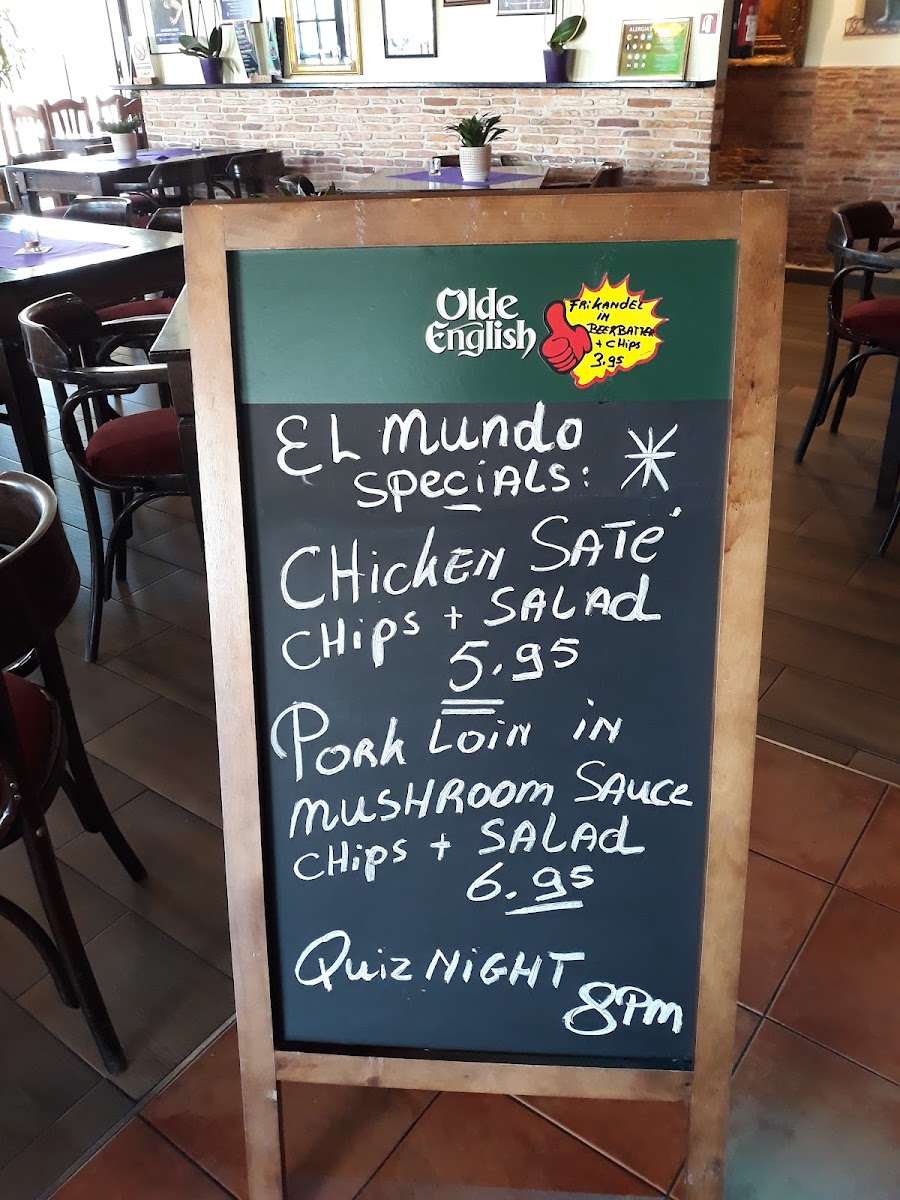 ALERGIAS
Olde
English
FRiKANdEL
IN
BEERBATTER
+ CHips
3.95
EL Mundo
SpeciALs:
CHicKEN SATé
CHips + SALAd
5.95
PORK LOIN iN
MUSHROOM SAUCE
CHips + SALAd
6.95
Quiz NIGHT
8PM